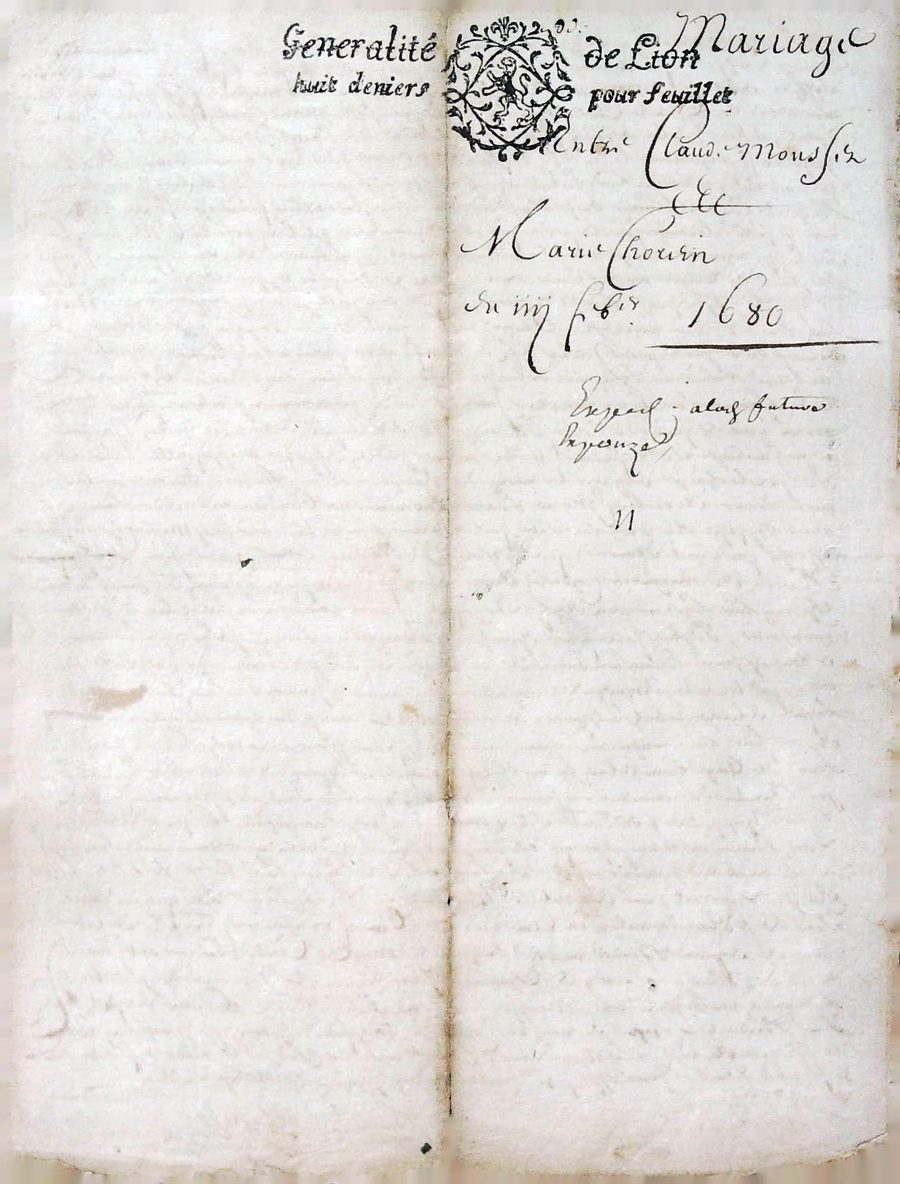 Generalité de Lion
huit deniers pour feuillet
Mariage
Entre Claude Mousser
Marie Chorein
du iiij feb.er 1680
Exped. a lad. future
Espouze
11